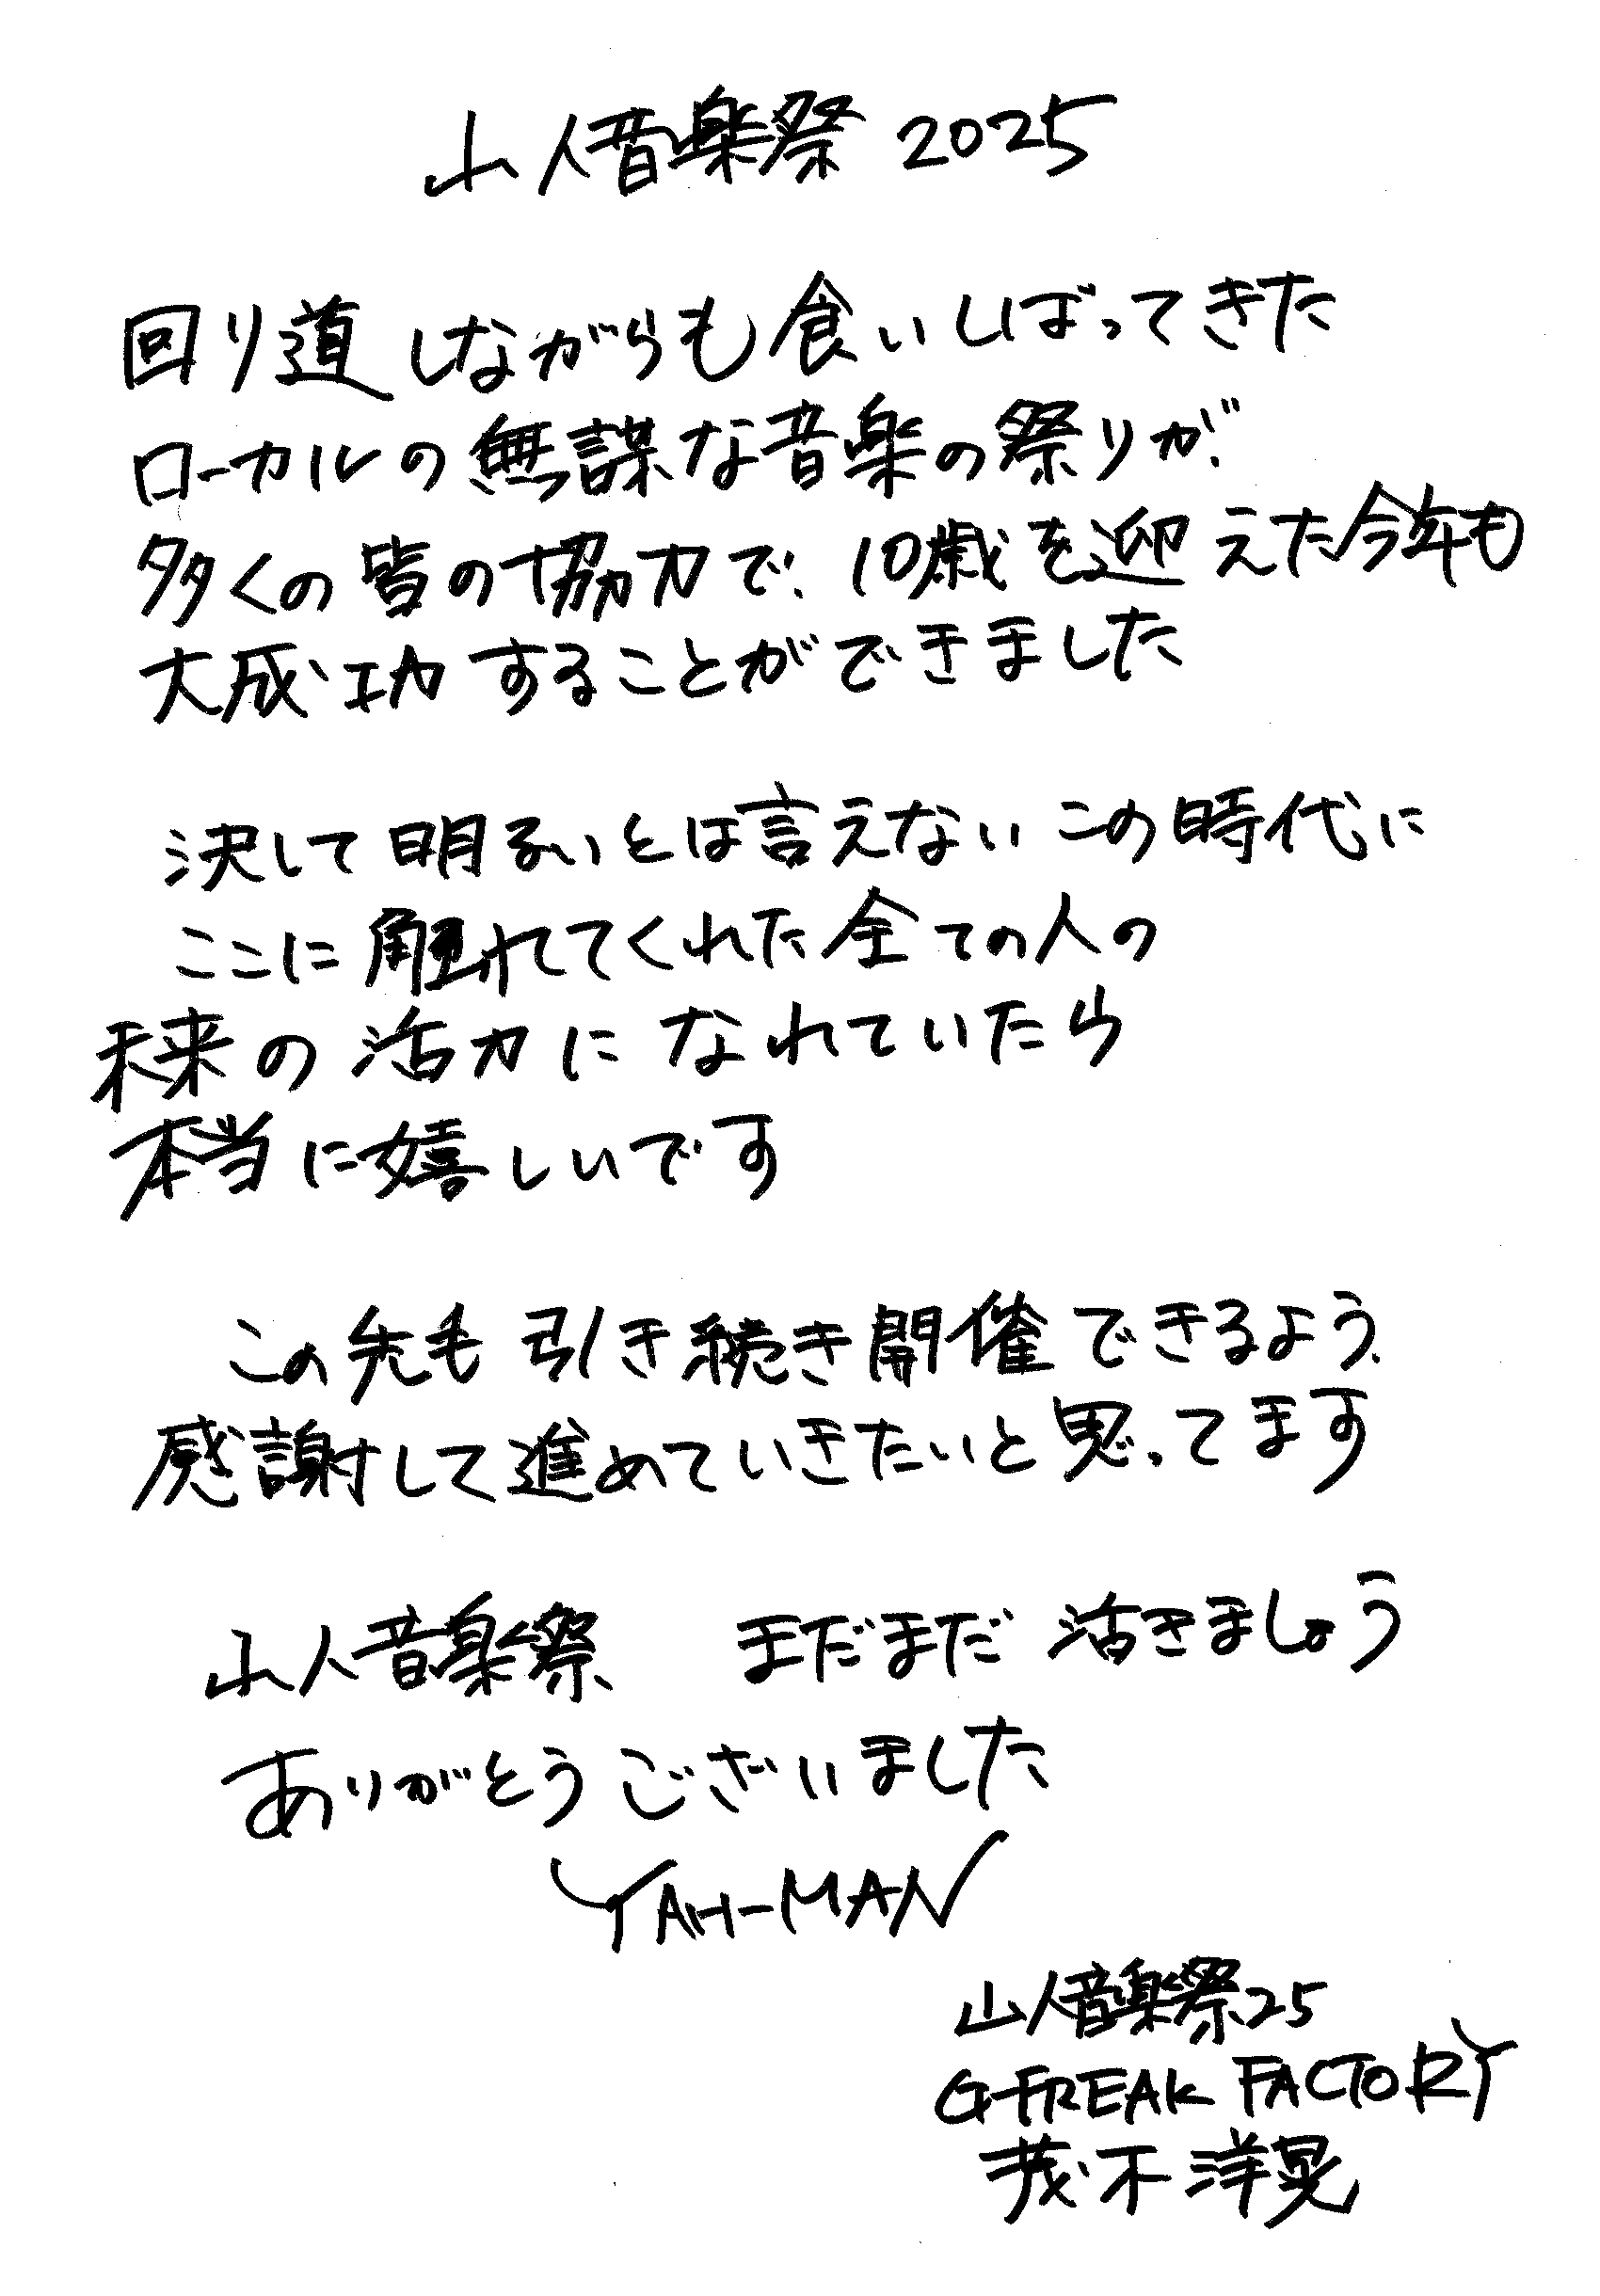 山人音楽祭 2025
回り道しながらも食いしばってきた
ローカルの無謀な音楽の祭りが、
多くの皆の協力で、10歳を迎えた今年も
大成功することができました
決して明るいとは言えないこの時代に
ここに触れてくれた全ての人の
未来の活力になれていたら
本当に嬉しいです
この先も引き続き開催できるよう、
感謝して進めていきたいと思ってます
山人音楽祭、 まだまだ活きましょう
ありがとうございました
YAH-MAN
山人音楽祭25
G-FREAK FACTORY
茂木洋晃